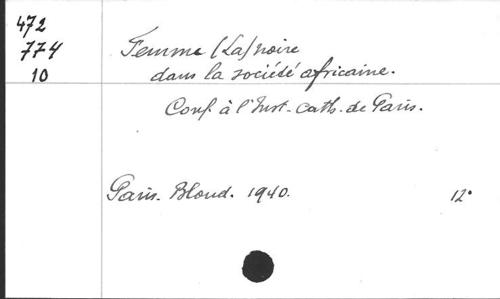 472
774
10
Femme (La) noire
dans la société africaine.
Conf. à l'Inst. Cath. de Paris.
Paris. Bloud. 1940. 12°